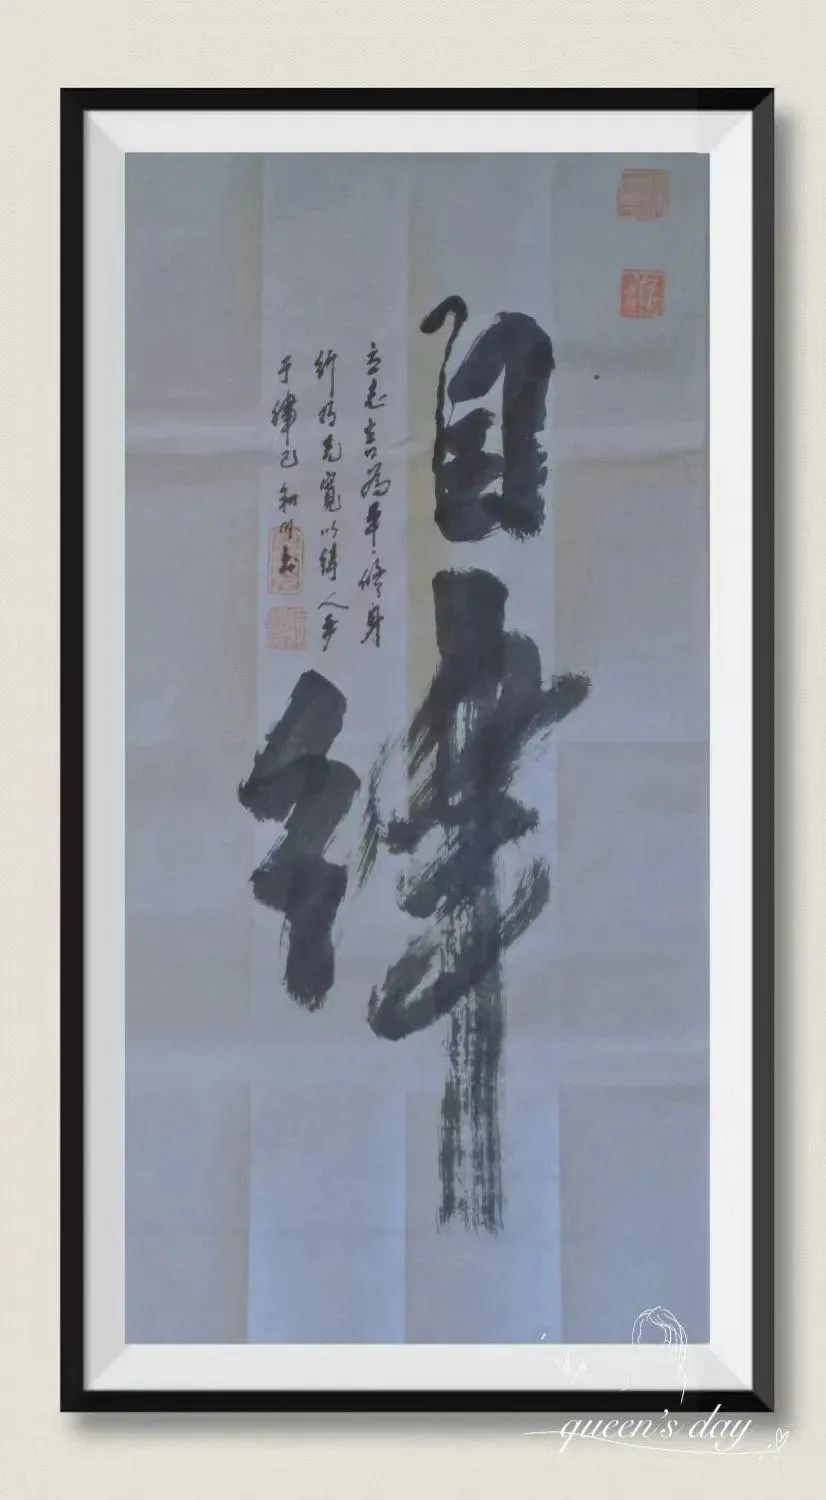 自律
立志言為本修身
行为先寬以待人严
于律己
queen's day